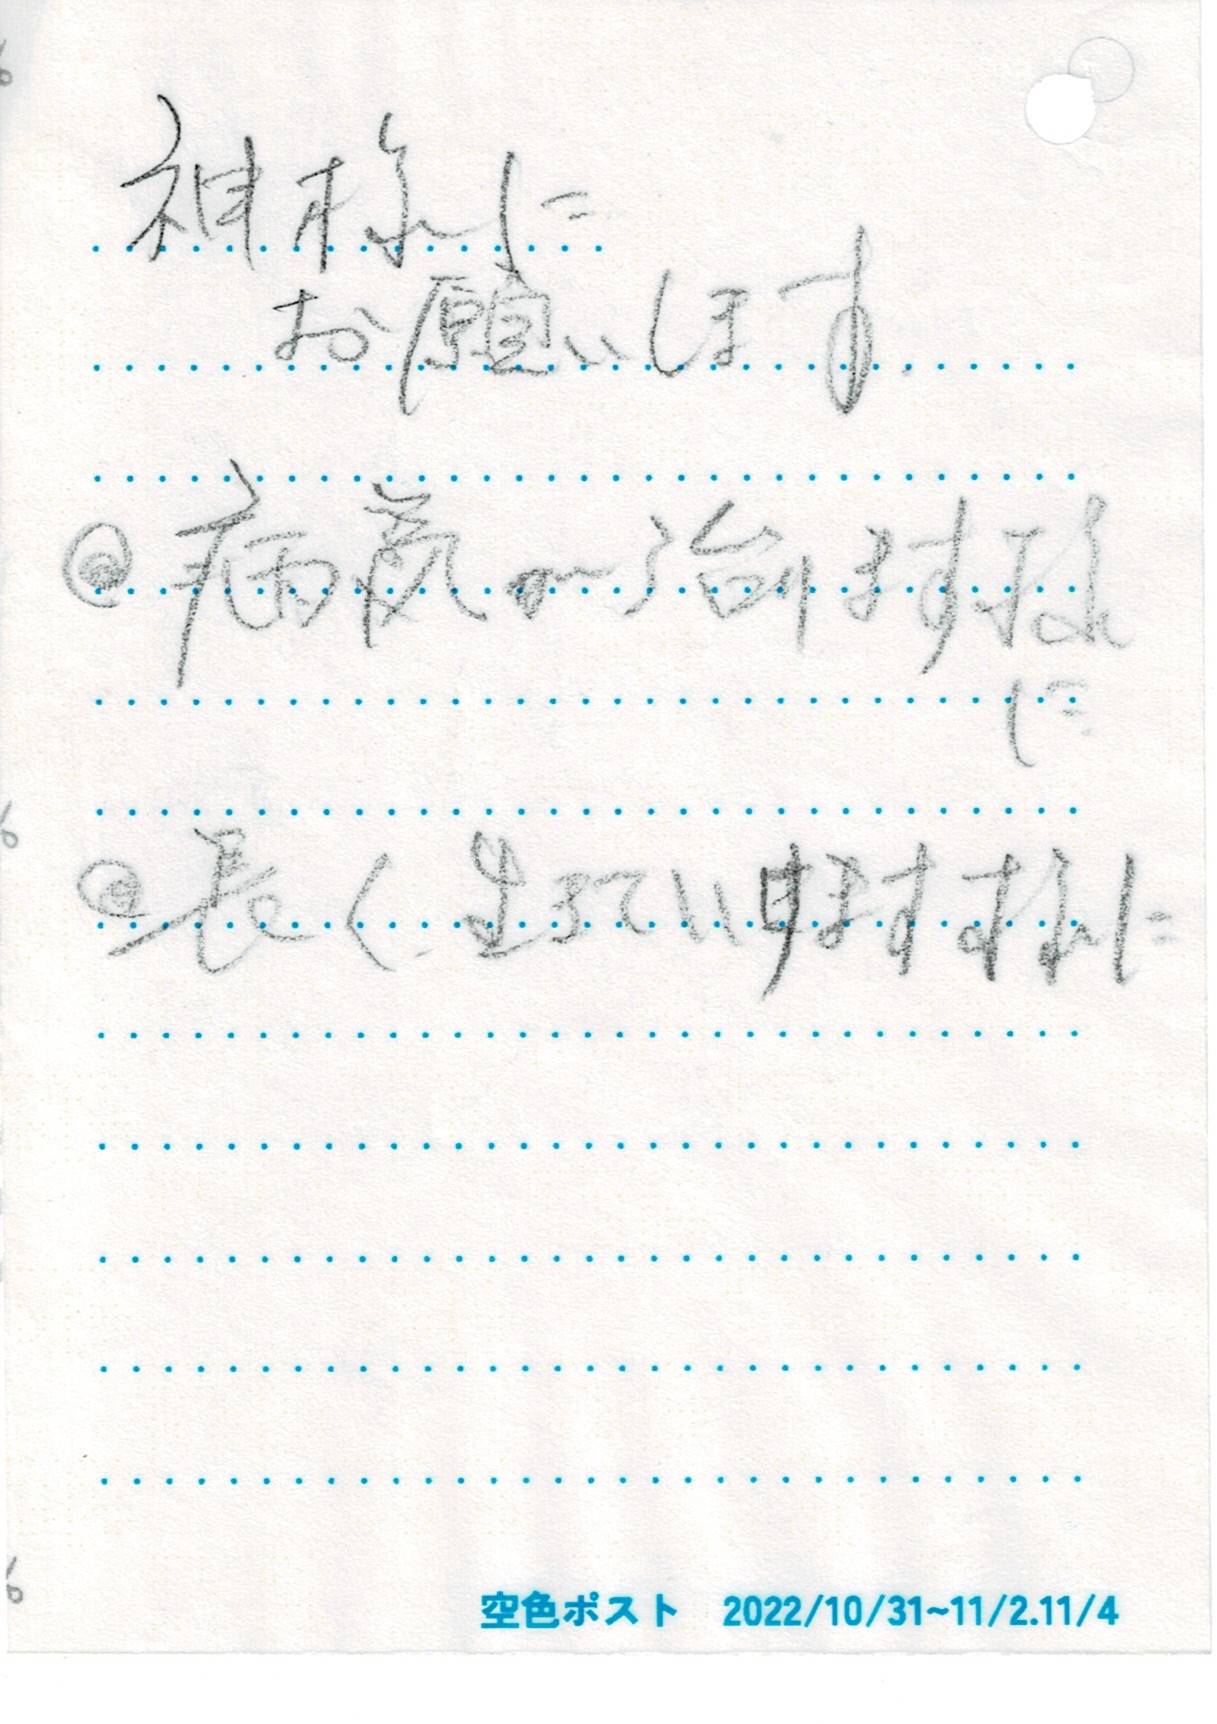 神様に
お願いします
◎病気が治ります様
に
◎長く生きていけますす様に
空色ポスト 2022/10/31~11/2.11/4